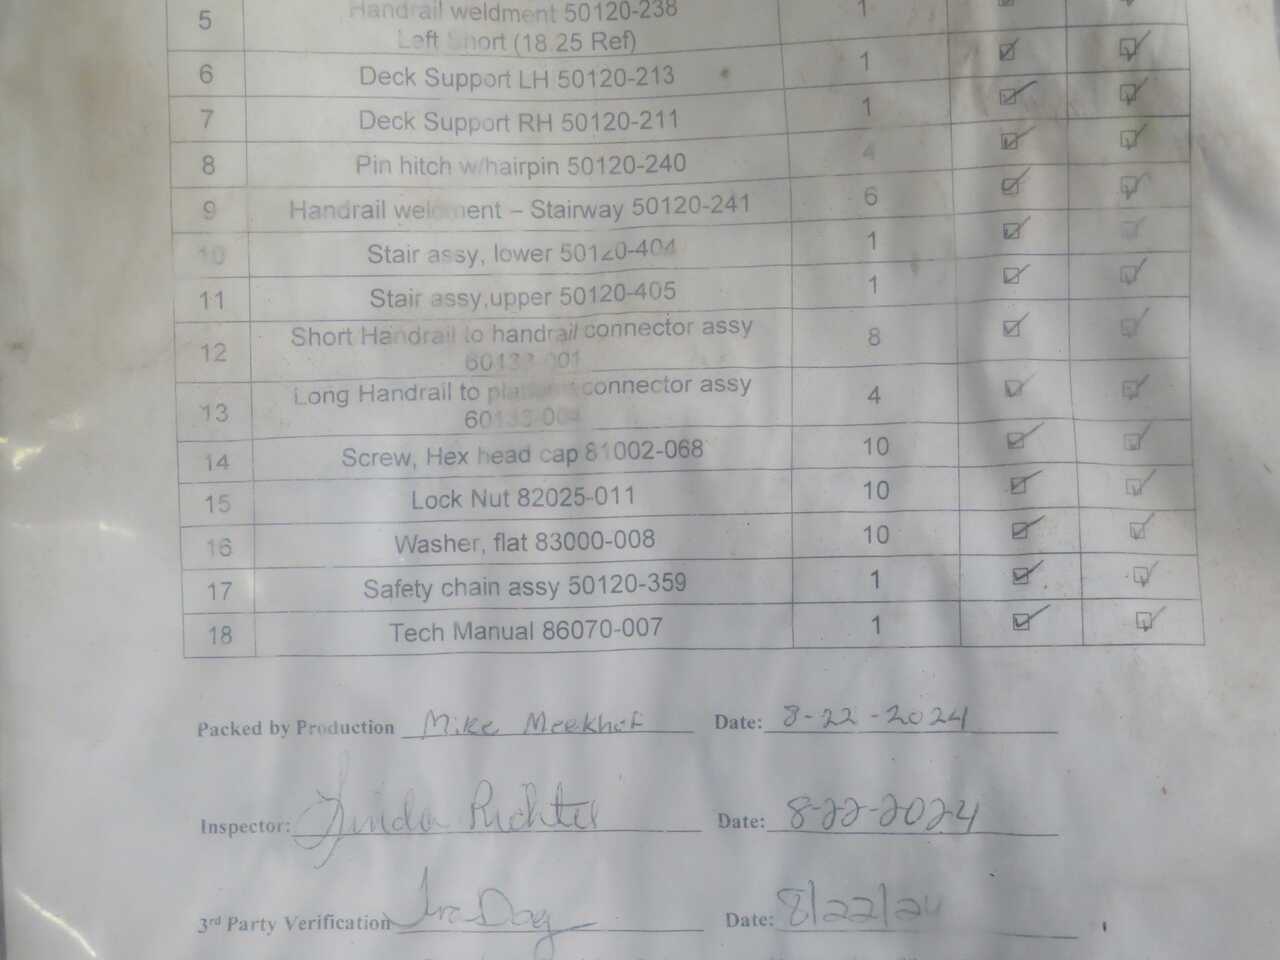 5 Handrail weldment 50120-238 1
Left Short (18.25 Ref)
6 Deck Support LH 50120-213 1
7 Deck Support RH 50120-211 1
8 Pin hitch w/hairpin 50120-240 4
9 Handrail weldment – Stairway 50120-241 6
10 Stair assy, lower 50120-404 1
11 Stair assy,upper 50120-405 1
12 Short Handrail to handrail connector assy 8
60133-001
13 Long Handrail to connector assy 4
14 Screw, Hex head cap 81002-068 10
15 Lock Nut 82025-011 10
16 Washer, flat 83000-008 10
17 Safety chain assy 50120-359 1
18 Tech Manual 86070-007 1
Packed by Production Mike Meekhof Date: 8-22-2024
Inspector: Linda Richter Date: 8-22-2024
3rd Party Verification Date: 8/22/24